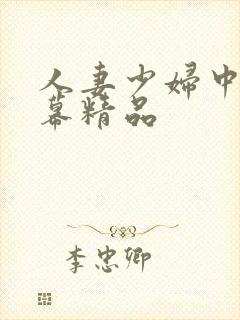 人妻少婦中
幕精品
李忠卿